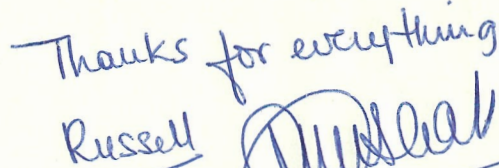 Thanks for everything
Russell